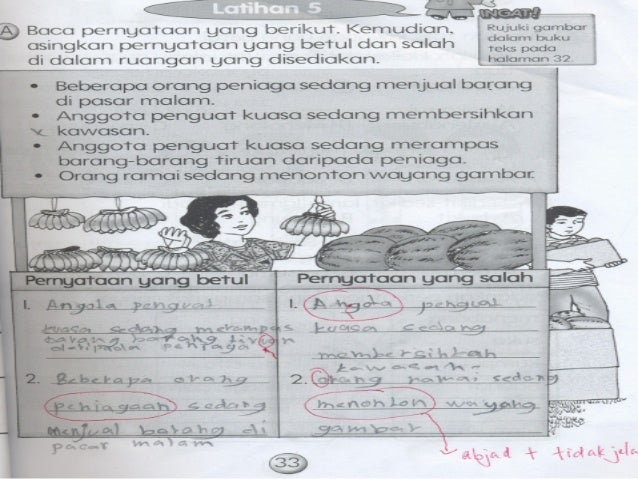 Latihan 5
INGAT!
A Baca pernyataan yang berikut. Kemudian,
asingkan pernyataan yang betul dan salah
di dalam ruangan yang disediakan.
Rujuki gambar
dalam buku
teks pada
halaman 32.
• Beberapa orang peniaga sedang menjual barang
di pasar malam.
• Anggota penguat kuasa sedang membersihkan
kawasan.
• Anggota penguat kuasa sedang merampas
barang-barang tiruan daripada peniaga.
• Orang ramai sedang menonton wayang gambar.
Pernyataan yang betul
1. Angota pengual
kuasa sedang merampas
barang barang tiruan
daripada peniaga
2. Beberapa orang
peniagaan sedang
menjual barang di
pasar malam
Pernyataan yang salah
1. Angota pengual
kuasa sedang
membersihkan
kawasan.
2. orang ramai sedang
menonton wayang
gambar
abjad + tidak jela
33